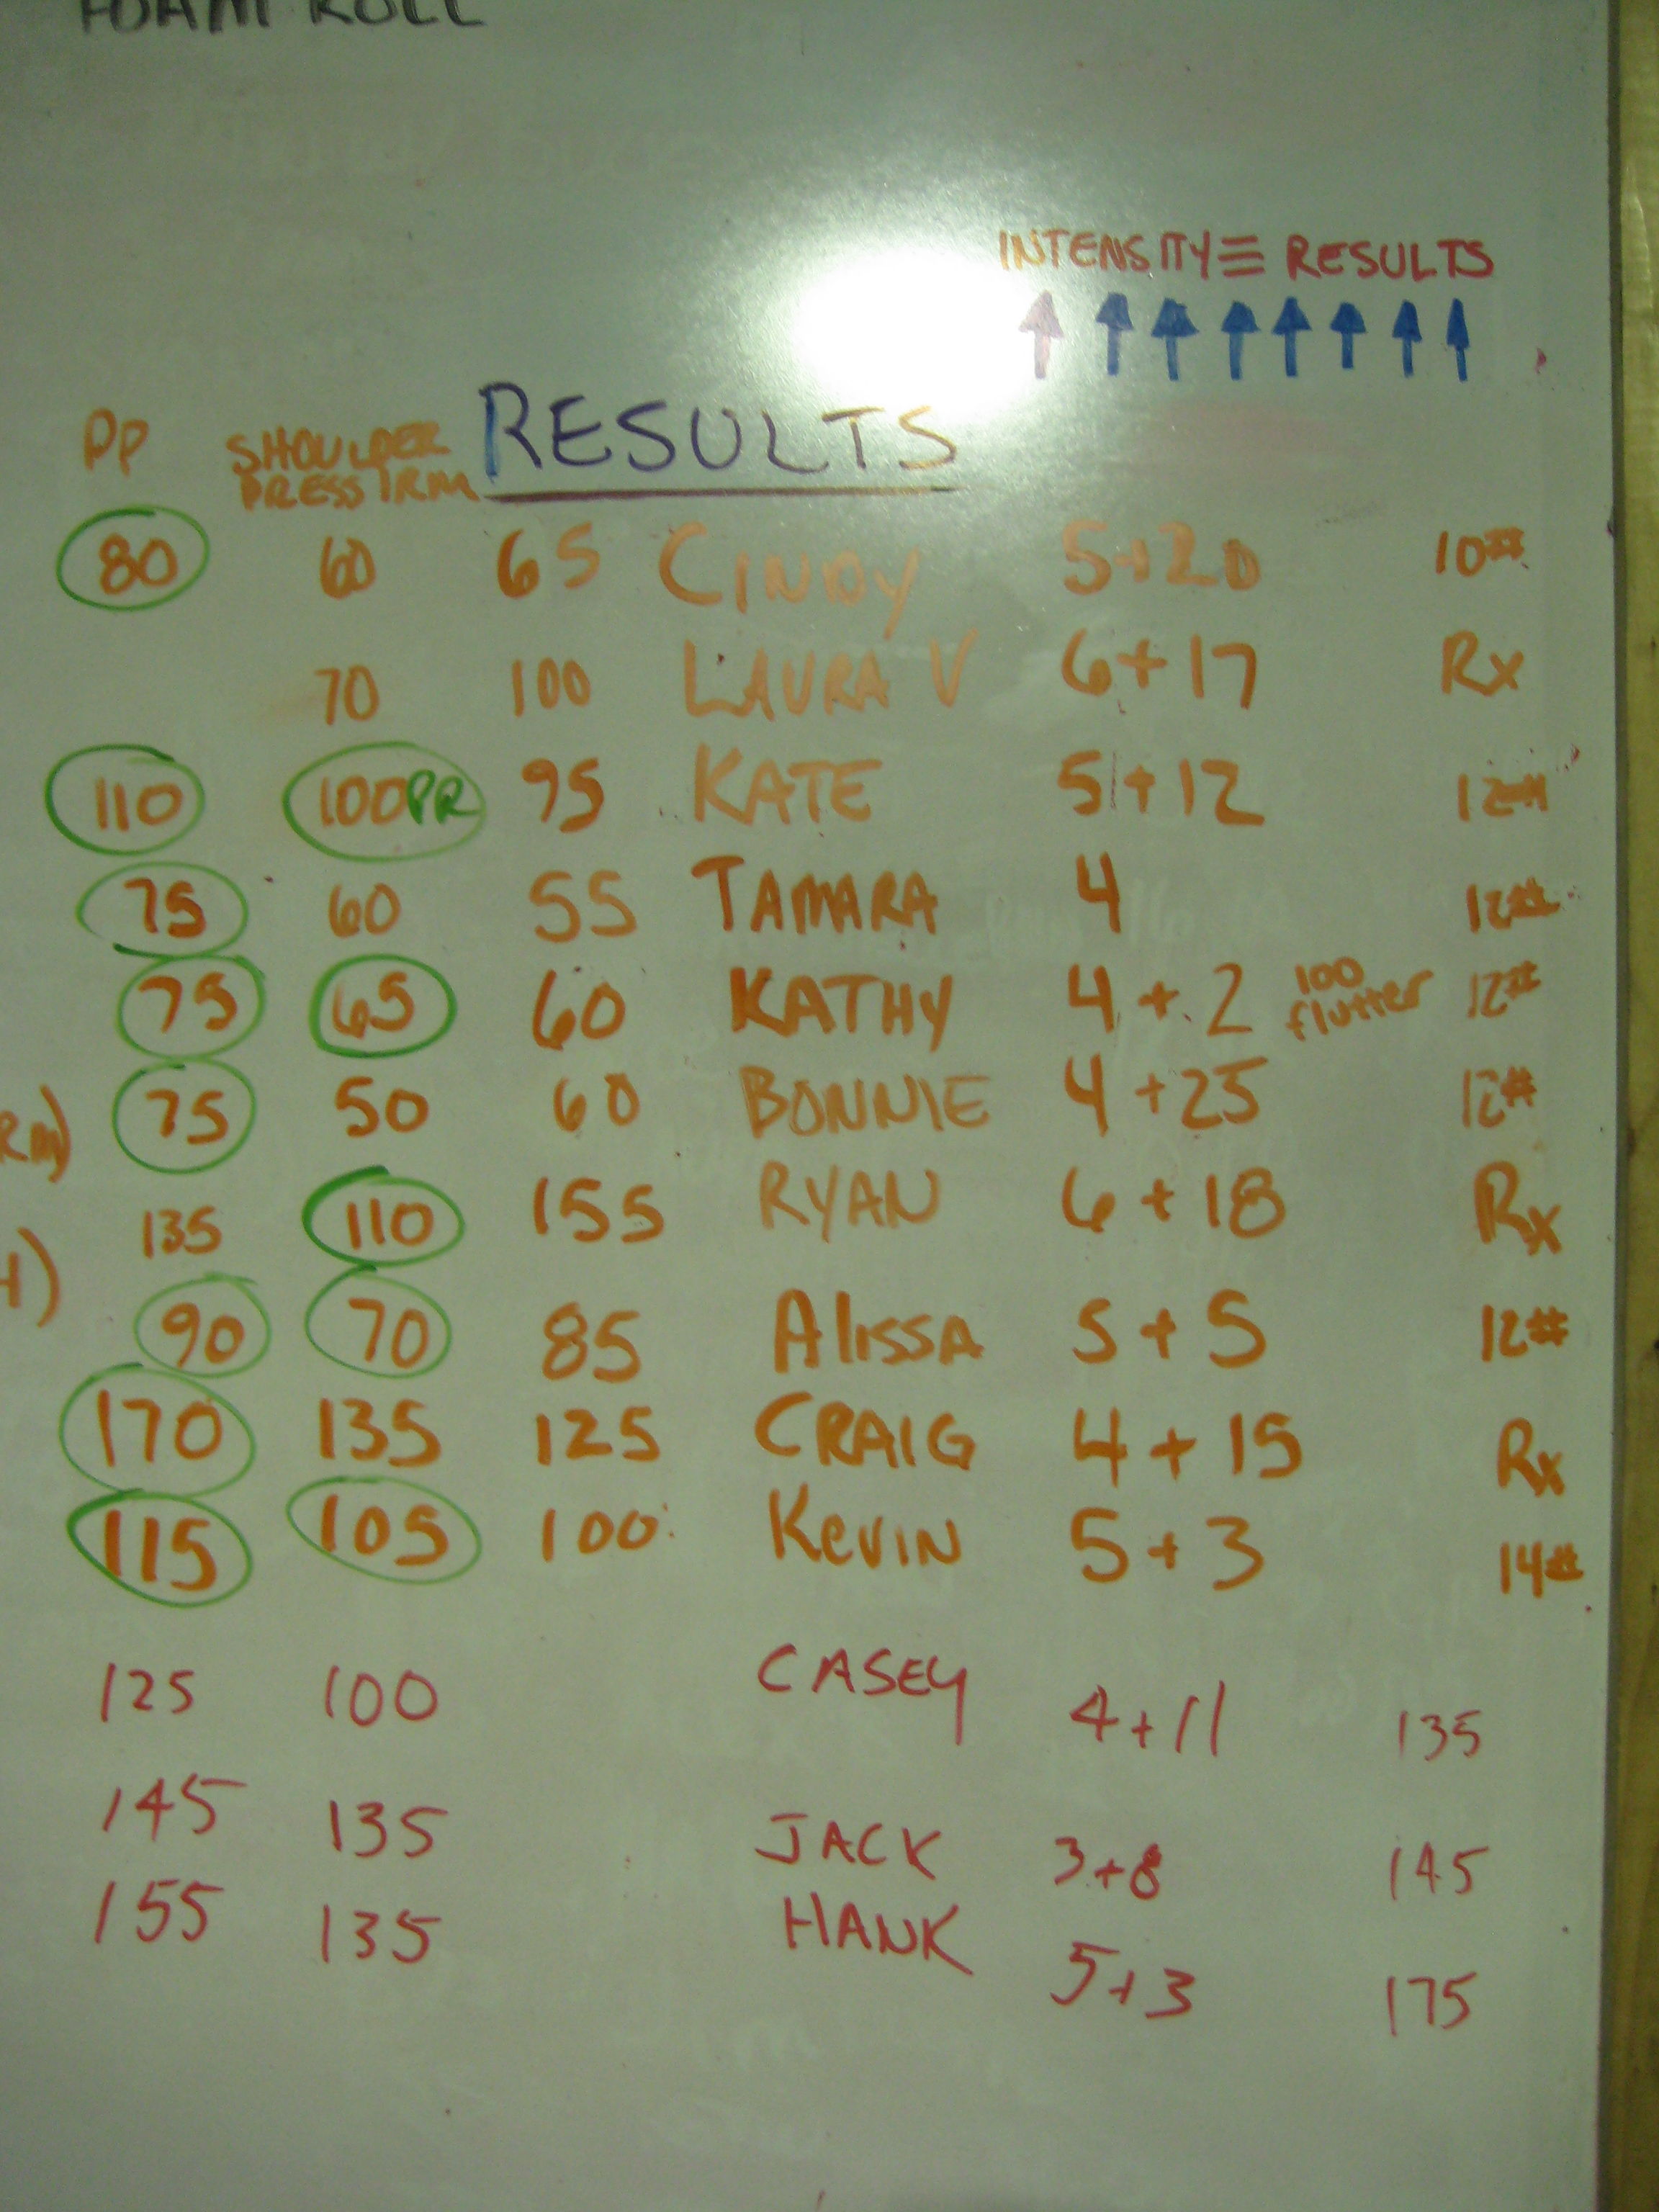 FOAM ROLL
INTENSITY ≡ RESULTS
↑ ↑ ↑ ↑ ↑ ↑ ↑ ↑
RESULTS
PP SHOULDER
PRESS 1RM
80 60 65 CINDY 5+20 10#
70 100 LAURA V 6+17 Rx
110 100PR 95 KATE 5+12 12#
75 60 55 TAMARA 4 12#
75 65 60 KATHY 4+2 100 flutter 12#
75 50 60 BONNIE 4+25 12#
135 110 155 RYAN 6+18 Rx
90 70 85 AlissA 5+5 12#
170 135 125 CRAIG 4+15 Rx
115 105 100 KeVIN 5+3 14#
125 100 CASEY 4+11 135
145 135 JACK 3+8 145
155 135 HANK 5+3 175